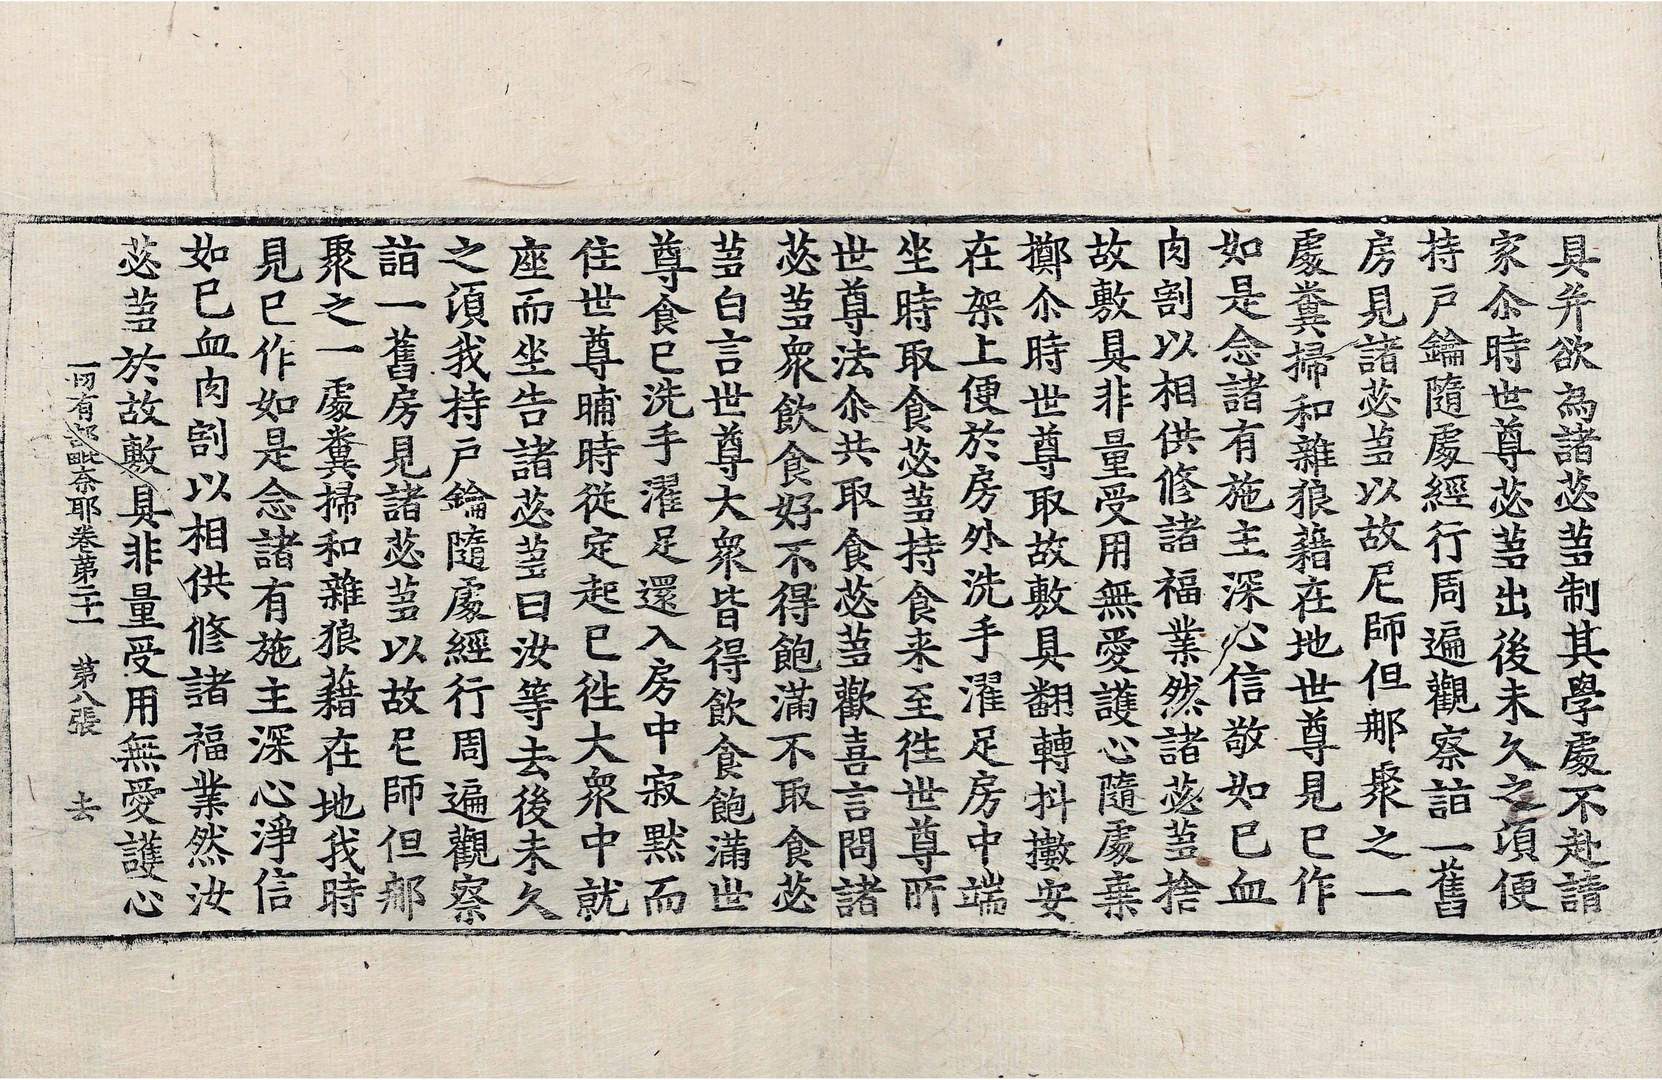 具并欲為諸苾蒭制其學處不赴請
家尒時世尊苾蒭出後未久之湏便
持戶鑰隨處經行周遍觀察詣一舊
房見諸苾蒭以故尼師但郍聚之一
處糞掃和雜狼藉在地世尊見已作
如是念諸有施主深心信敬如已血
肉割以相供修諸福業然諸苾蒭捨
故敷具非量受用無愛護心隨處棄
擲尒時世尊取故敷具翻轉抖擻安
在架上便於房外洗手濯足房中端
坐時取食苾蒭持食来至徃世尊所
世尊法尒共取食苾蒭歡喜言問諸
苾蒭衆飲食好不得飽滿不取食苾
蒭白言世尊大衆皆得飲食飽滿世
尊食已洗手濯足還入房中寂默而
住世尊晡時從定起已徃大衆中就
座而坐告諸苾蒭曰汝等去後未久
之湏我持戶鑰隨處經行周遍觀察
詣一舊房見諸苾蒭以故尼師但郍
聚之一處糞掃和雜狼藉在地我時
見已作如是念諸有施主深心淨信
如已血肉割以相供修諸福業然汝
苾蒭於故敷具非量受用無愛護心
一切有部毗奈耶卷第二十一 第八張 去